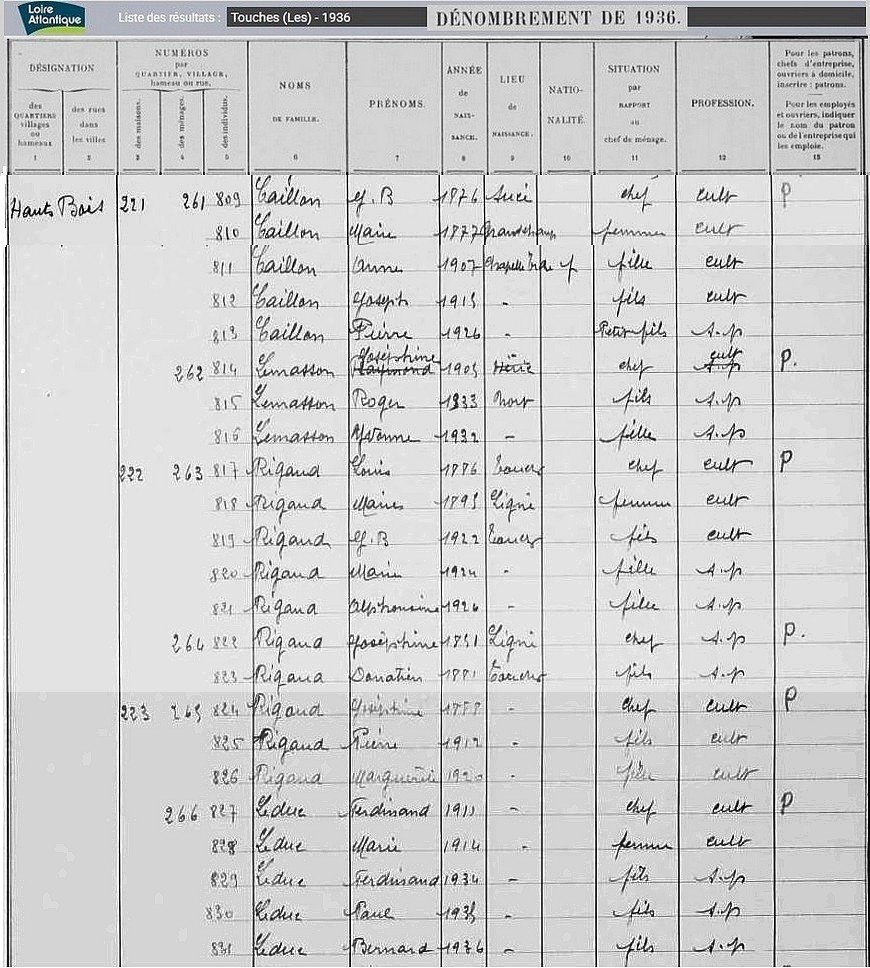 Loire Atlantique
Liste des résultats : Touches (Les) - 1936
DÉNOMBREMENT DE 1936.
DÉSIGNATION
des QUARTIERS villages ou hameaux
1
des rues dans les villes
2
NUMÉROS par QUARTIER, VILLAGE, hameau ou rue.
des maisons.
3
des ménages.
4
des individus.
5
NOMS DE FAMILLE.
6
PRÉNOMS.
7
ANNÉE de NAIS- SANCE.
8
LIEU de NAISSANCE.
9
NATIO- NALITÉ.
10
SITUATION par RAPPORT au chef de ménage.
11
PROFESSION.
12
Pour les patrons, chefs d'entreprise, ouvriers à domicile, inscrire : patrons.
Pour les employés et ouvriers, indiquer le nom du patron ou de l'entreprise qui les emploie.
13
Hauts Bois 221 261 809 Caillon J.B 1876 Sucé chef cult P
810 Caillon Marie 1877 Grandchamp femme cult
811 Caillon Anne 1907 f fille cult
812 Caillon Joseph 1915 - fils cult
813 Caillon Pierre 1926 - Petit fils s.p
262 814 Lemasson Joséphine Raymond 1905 Héric chef cult s.p P.
815 Lemasson Roger 1933 Nort fils s.p
816 Lemasson Yvonne 1932 - fille s.p
222 263 817 Rigaud Louis 1886 Touches chef cult P
818 Rigaud Marie 1895 Ligné femme cult
819 Rigaud J.B 1922 Touches fils cult
820 Rigaud Marie 1924 - fille s.p
821 Rigaud Alphonsine 1926 - fille s.p
264 822 Rigaud Joséphine 1851 Ligné chef s.p P.
823 Rigaud Donatien 1881 Touches fils s.p
223 265 824 Rigaud Joséphine - chef cult P
825 Rigaud Pierre 1912 - fils cult
826 Rigaud Marguerite 1920 - fille cult
266 827 Leduc Ferdinand 1911 - chef cult P
828 Leduc Marie 1914 - femme cult
829 Leduc Ferdinand 1934 - fils s.p
830 Leduc Paul 1935 - fils s.p
831 Leduc Bernard 1936 - fils s.p